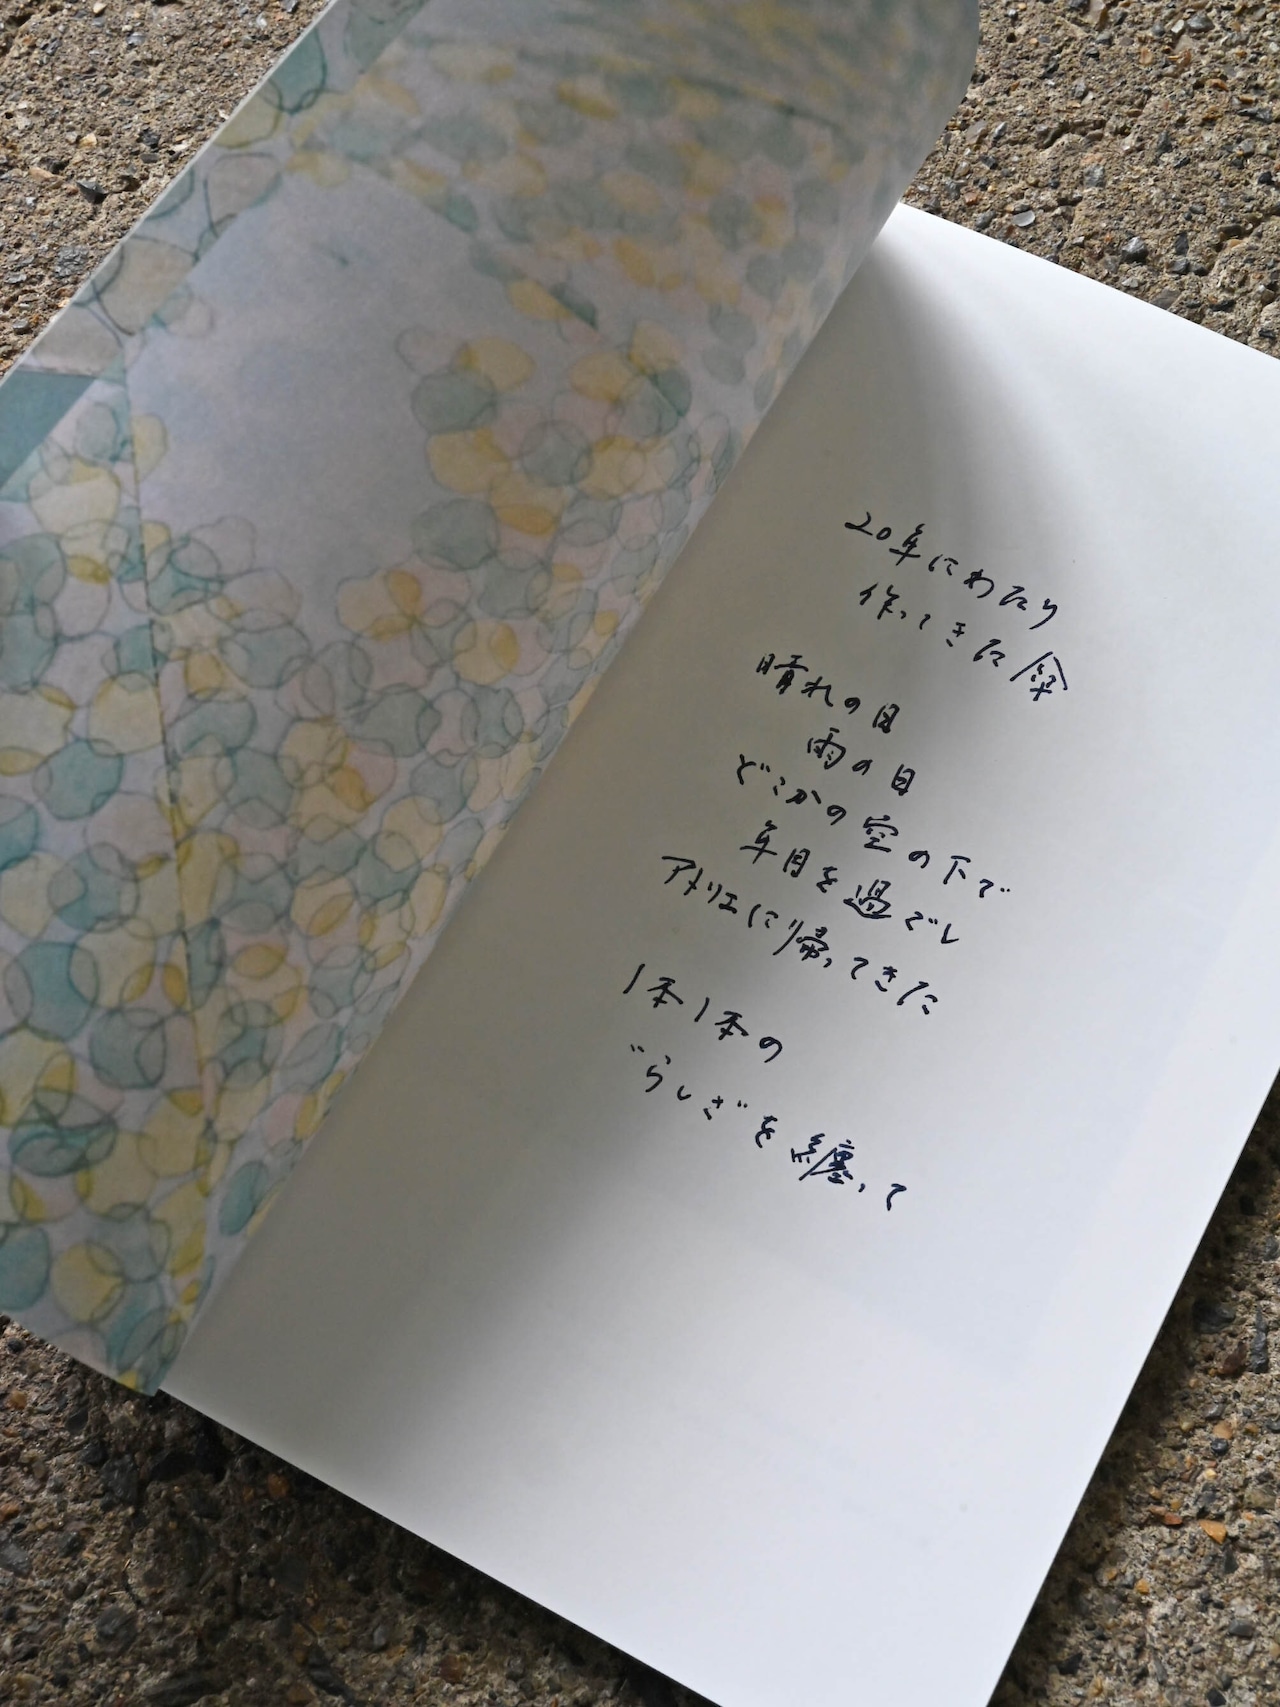 20年にわたり
作ってきた傘
晴れの日
雨の日
どこかの空の下で
年月を過ごし
アトリエに帰ってきた
1本1本の
"らしさ"を纏って